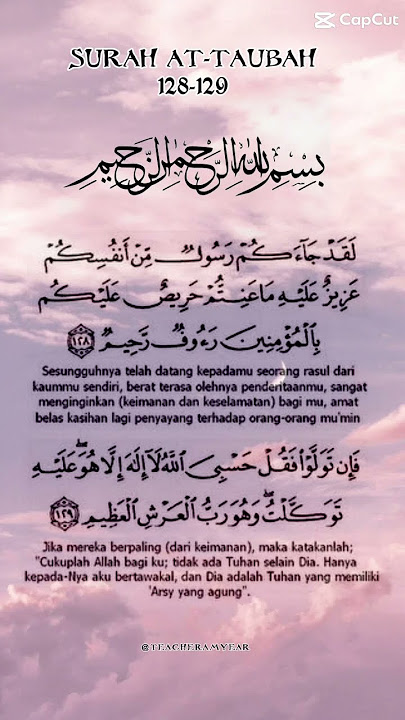 CapCut
SURAH AT-TAUBAH
128-129
بِسْمِ اللهِ الرَّحْمٰنِ الرَّحِيْمِ
لَقَدْ جَآءَكُمْ رَسُوْلٌ مِّنْ أَنْفُسِكُمْ
عَزِيْزٌ عَلَيْهِ مَا عَنِتُّمْ حَرِيْصٌ عَلَيْكُمْ
بِالْمُؤْمِنِيْنَ رَءُوْفٌ رَّحِيْمٌ ﴿١٢٨﴾
Sesungguhnya telah datang kepadamu seorang rasul dari
kaummu sendiri, berat terasa olehnya penderitaanmu, sangat
menginginkan (keimanan dan keselamatan) bagi mu, amat
belas kasihan lagi penyayang terhadap orang-orang mu'min
فَإِن تَوَلَّوْا فَقُلْ حَسْبِيَ اللَّهُ لَآ إِلَهَ إِلَّا هُوَ ۖ عَلَيْهِ
تَوَكَّلْتُ ۖ وَهُوَ رَبُّ الْعَرْشِ الْعَظِيْمِ ﴿١٢٩﴾
Jika mereka berpaling (dari keimanan), maka katakanlah;
"Cukuplah Allah bagi ku; tidak ada Tuhan selain Dia. Hanya
kepada-Nya aku bertawakal, dan Dia adalah Tuhan yang memiliki
'Arsy yang agung".
@TEACHERAMYEAR